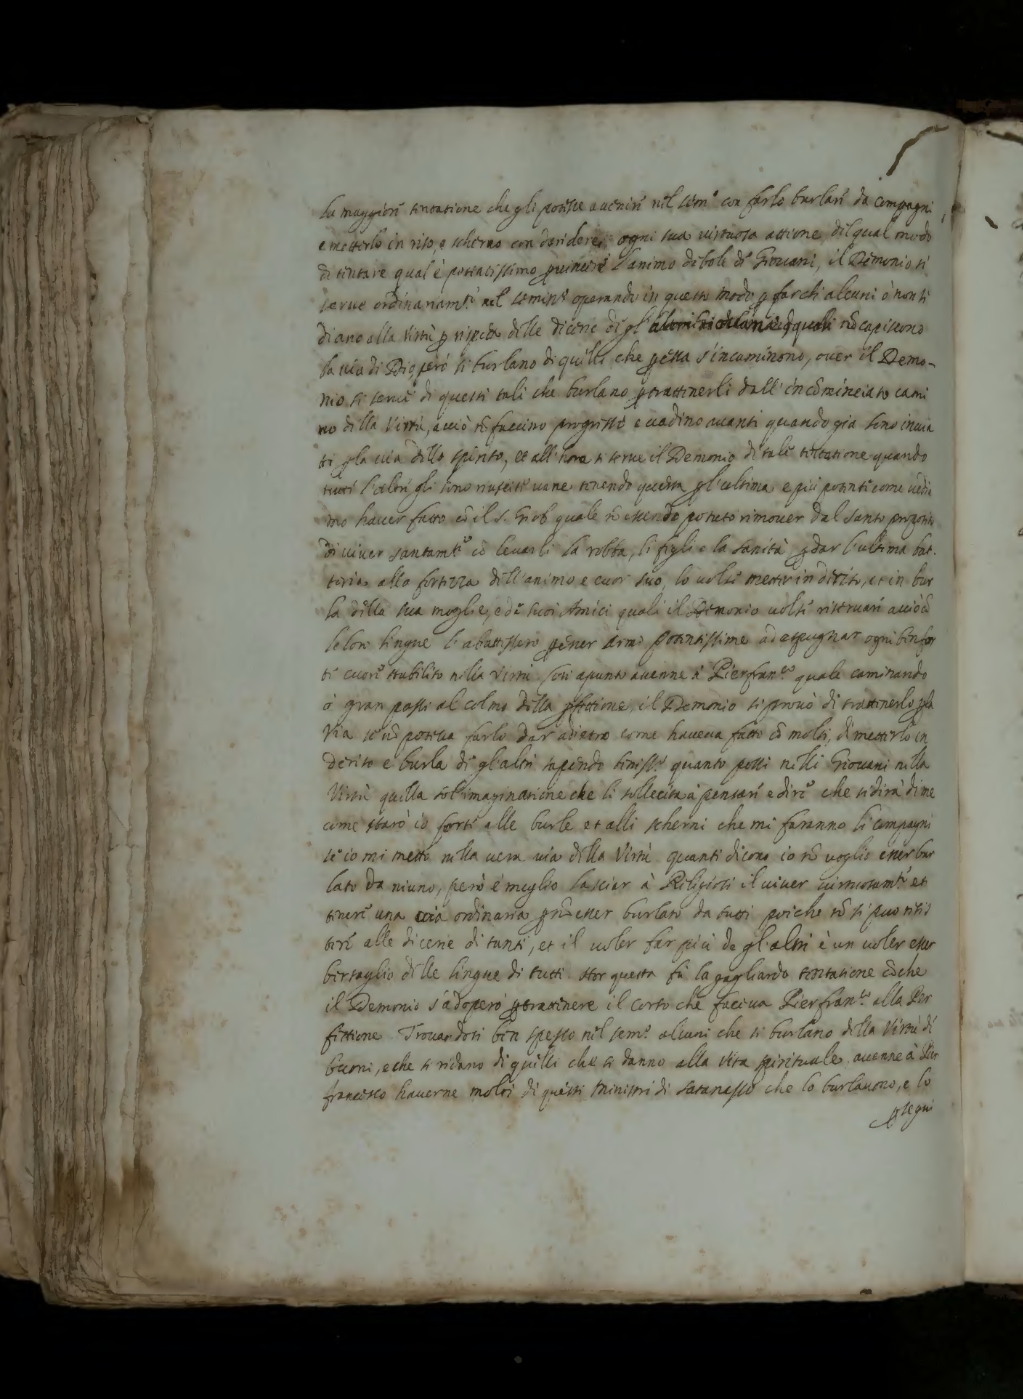 la maggiore tentatione che gli potesse auenire nel Sem.º con farlo burlare da compagni
e metterlo in riso, e scherno con deridere ogni sua virtuosa attione, del qual modo
di tentare qual è potentissimo l'animo debole de Giouani, il Demonio si
serue ordinariam.te nel operando in questo modo p far che alcuni ò non si
diano alla Virtù p rispetto delle dicerie di gl' quali nõ capiscono
la via di Dio però si burlano di quelli che p essa s'incaminono, ouer il Demo-
nio si serue di questi tali che burlano p trattinerli dall' incõminciato cami
no della Virtù, acciò nõ faccino progresso e vadino auanti quando già sono inuia
ti p la via dello spirito, et all'hora si serue il Demonio di tale tentatione quando
tutte l'altre gli sono riuscite vane tenendo questa p l'ultima e più potente come uedia
mo hauer fatto cõ il s. Giob quale nõ essendo potuto rimouer dal santo proposito
di uiuer santam.te cõ leuarli la robba, li figli e la sanità, p dar l'ultima bat-
teria alla fortezza dell'animo e cuor suo, lo uolse metter in deriso, et in bur
la della sua moglie, e de suoi Amici quali il Demonio uolse riseruare acciò cõ
le lor lingue l'abattessero p esser armi potentissime ad espugnar ogni ben for
te cuore stabilito nella virtù. Così apunto auenne à Pierfran.co quale caminando
à gran passi al colmo della pfettione, il Demonio si prouò di trattinerlo p
via se nõ poteua farlo dar' adietro come haueua fatto cõ molti, di metterlo in
deriso e burla di gl'altri sapendo quanto possi nelli Giouani nella
Virtù quella sol' imaginatione che li sollecita à pensare e dire che si dirà di me
come starò io forte alle burle et alli scherni che mi faranno li compagni
se io mi metto nella uera uia della Virtù. quanti dicono io nõ voglio esser bur
lato da niuno, però è meglio lasciar à Religiosi il uiuer virtuosam.te et
tenere una uia ordinaria p nõ esser burlato da tutti poiche nõ si può resis
tere alle dicerie di tanti, et il uoler far più de gl'altri è un uoler esser
bersaglio delle lingue di tutti. Hor questa fù la gagliarda tentatione cõ che
il Demonio s'adoperò p trattinere il corso che faceua Pierfran.co alla Per
fettione. Trouandosi ben spesso nel sem.º alcuni che si burlano della Virtù de
buoni, e che si ridano di quelli che si danno alla vita spirituale. auenne à Pier
francesco hauerne molti di questi ministri di satanasso che lo burlauono, e lo
p segui